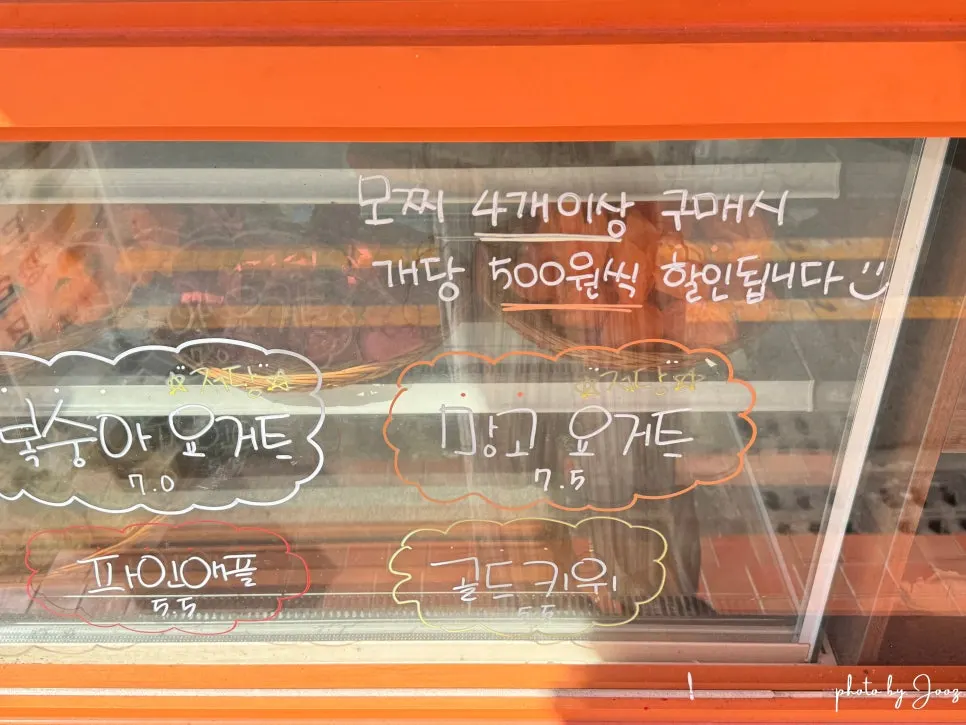 모찌 4개이상 구매시
개당 500원씩 할인됩니다
복숭아 요거트
7.0
망고 요거트
7.5
파인애플
5.5
골드키위
5.5
photo by Jooz